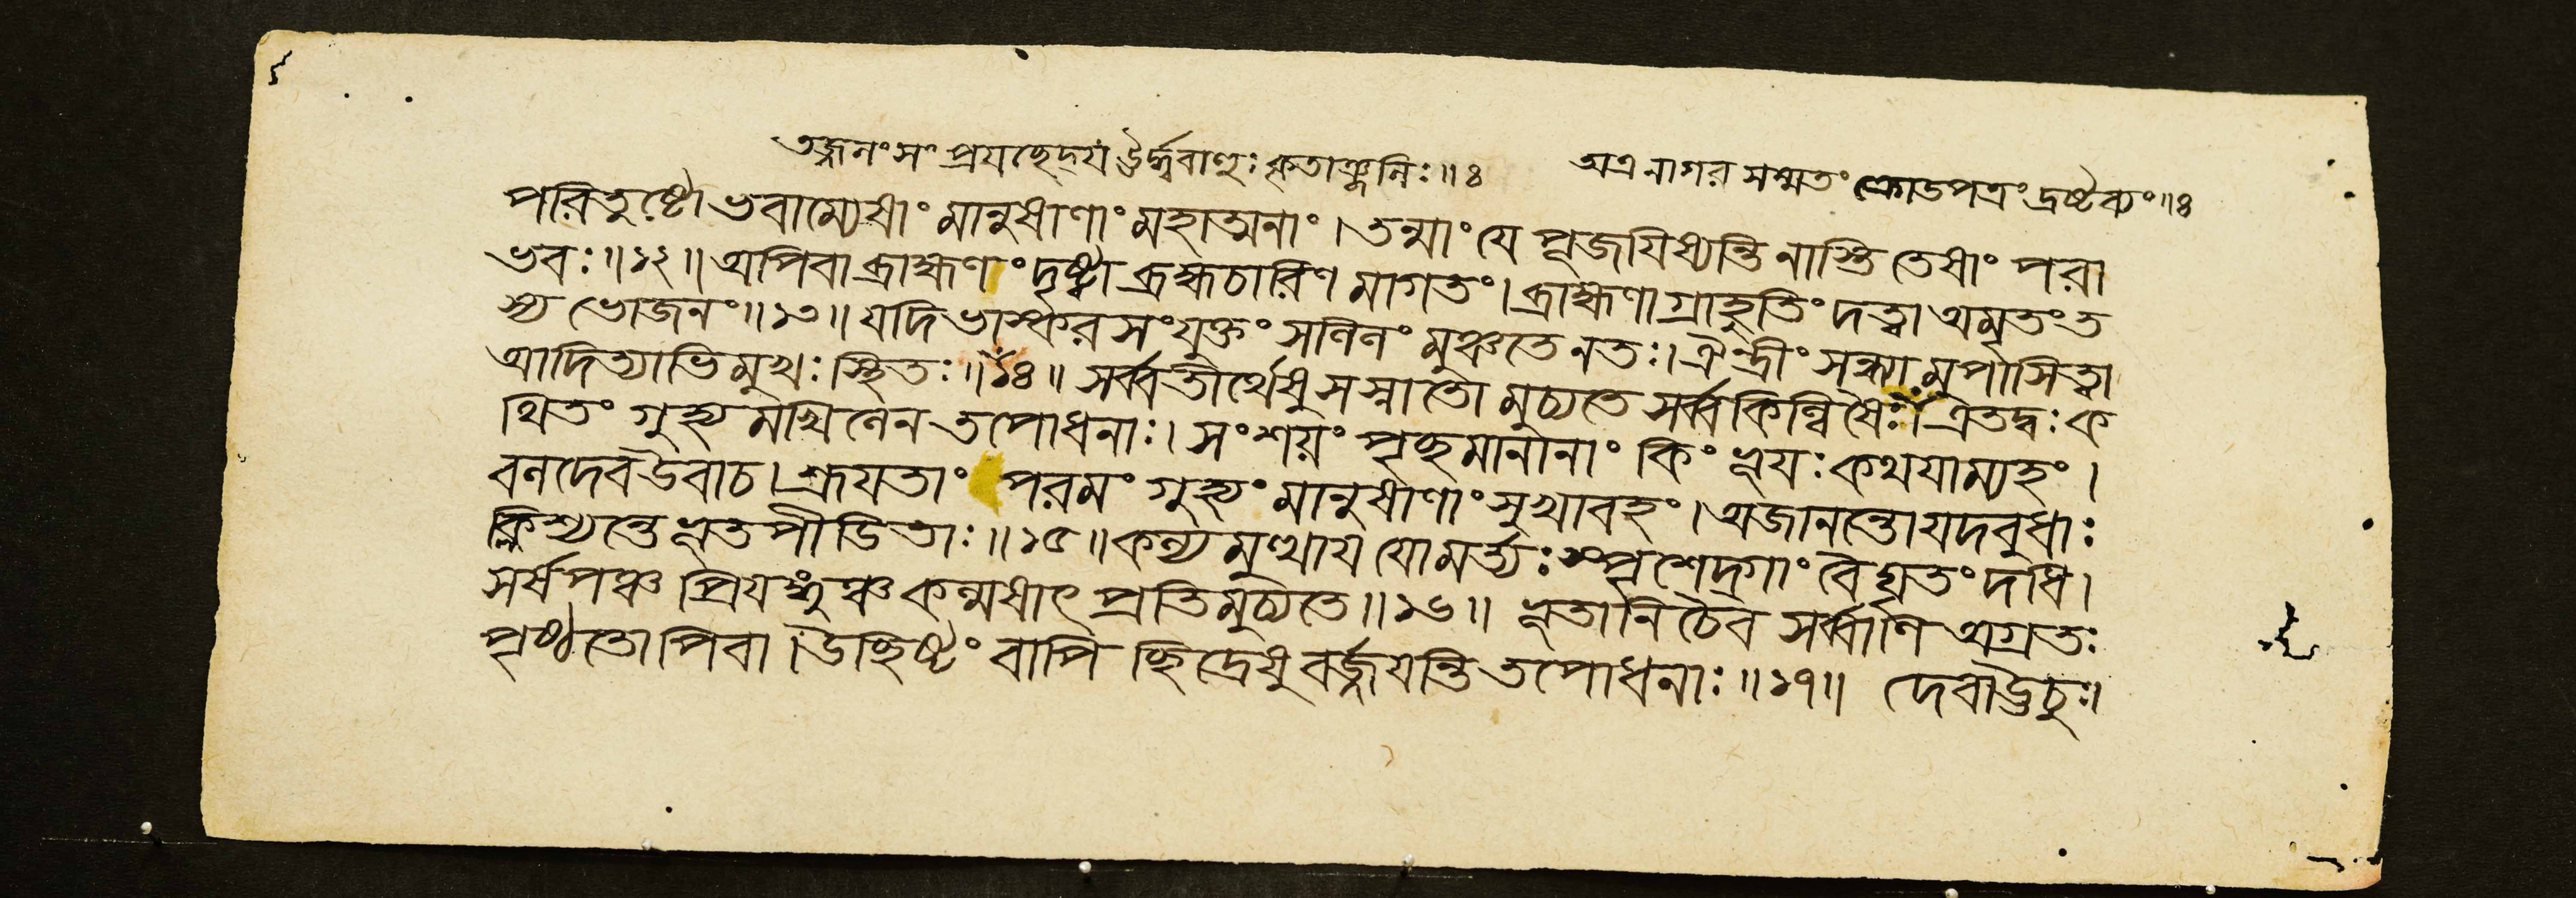 তজ্জনং সংপ্রযচ্ছেদ্যং ঊর্দ্ধ্ববাহুঃ কৃতাঞ্জলিঃ॥৪ অত্র নাগর সম্মতং ক্রোডপত্রং দ্রষ্টব্যং॥৪
পরিতুষ্টো ভবাম্যেষাং মানুষাণাং মহাত্মনাং। তন্মাং যে পূজযিষ্যন্তি নাস্তি তেষাং পরা
ভবঃ॥১২॥ অপিবা ব্রাহ্মণং দৃষ্ট্বা ব্রহ্মচারিণ মাগতং। ব্রাহ্মণাগ্রাহুতিং দত্বা অমৃতং ত
স্য ভোজনং॥১৩॥ যদি ভাস্কর সংযুক্তং সলিলং মুঞ্চতে নতঃ। ঐন্দ্রীং সন্ধ্যামুপাসিত্বা
আদিত্যাভিমুখঃ স্থিতঃ॥১৪॥ সর্ব্বতীর্থেষু সস্নাতো মুচ্যতে সর্ব্বকিল্বিষৈঃ। এতদ্বঃ ক
থিতং গুহ্য মখিলেন তপোধনাঃ। সংশয়ং পৃচ্ছমানানাং কিং ভূযঃ কথযাম্যহং।
বলদেব উবাচ। শ্রূযতাং পরমং গুহ্যং মানুষাণাং সুখাবহং। অজানন্তো যদবুধাঃ
ক্লিশ্যন্তে ভূতপীডিতাঃ॥১৫॥ কল্য মুত্থায যো মর্ত্যঃ স্পৃশেদ্গাং বৈ ঘৃতং দধি।
সর্ষপঞ্চ প্রিযঙ্গুঞ্চ কল্মষাৎ প্রতিমুচ্যতে॥১৬॥ ভূতানি চৈব সর্ব্বাণি অগ্রতঃ
পৃষ্ঠতোপিবা। উচ্ছিষ্টং বাপি ছিদ্রেষু বর্জ্জযন্তি তপোধনাঃ॥১৭॥ দেবা ঊচুঃ।